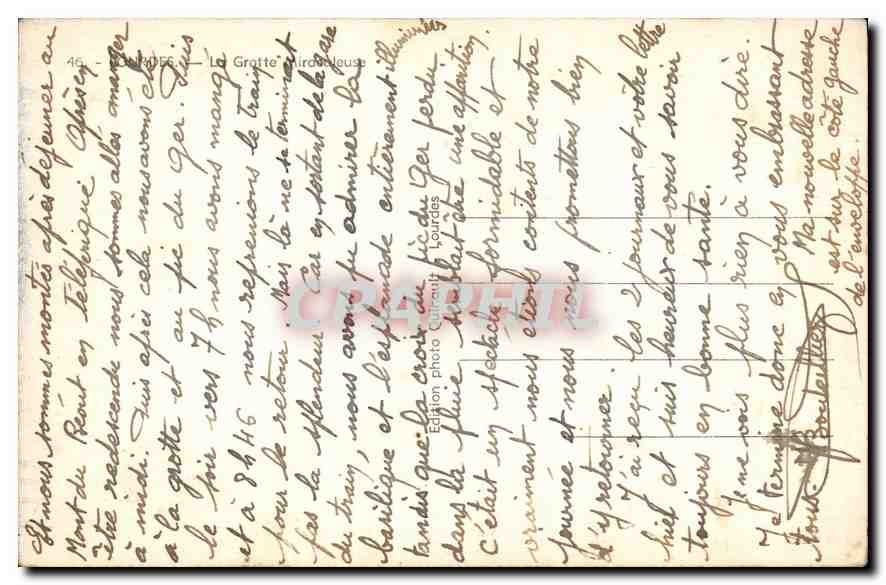 46. - LOURDES. — La Grotte miraculeuse
Et nous sommes montés après déjeuner au
Mont du Béout en téléférique. Après en
être redescendu nous sommes allés manger
à midi. Puis après cela nous avons été
à la grotte et au pic du Ger. Puis
le soir vers 7h nous avons mangé
et à 8h46 nous reprenions le train
pour le retour. Mais là ne se terminait
pas la splendeur car en sortant de la gare
du train, nous avons pu admirer la
basilique et l'esplanade entièrement illuminées
tandis que la croix du pic du Ger perdu
dans la pluie semblait être une apparition.
C'était un spectacle formidable et
vraiment nous étions contents de notre
journée et nous nous promettons bien
d'y retourner.
J'ai reçu les 2 journaux et votre lettre
hier et suis heureux de vous savoir
toujours en bonne santé.
Je ne vois plus rien à vous dire.
Je termine donc en vous embrassant
tous.
Ma nouvelle adresse
est sur le côté gauche
de l'enveloppe.
Edition photo Guirault Lourdes
CPAPHIL